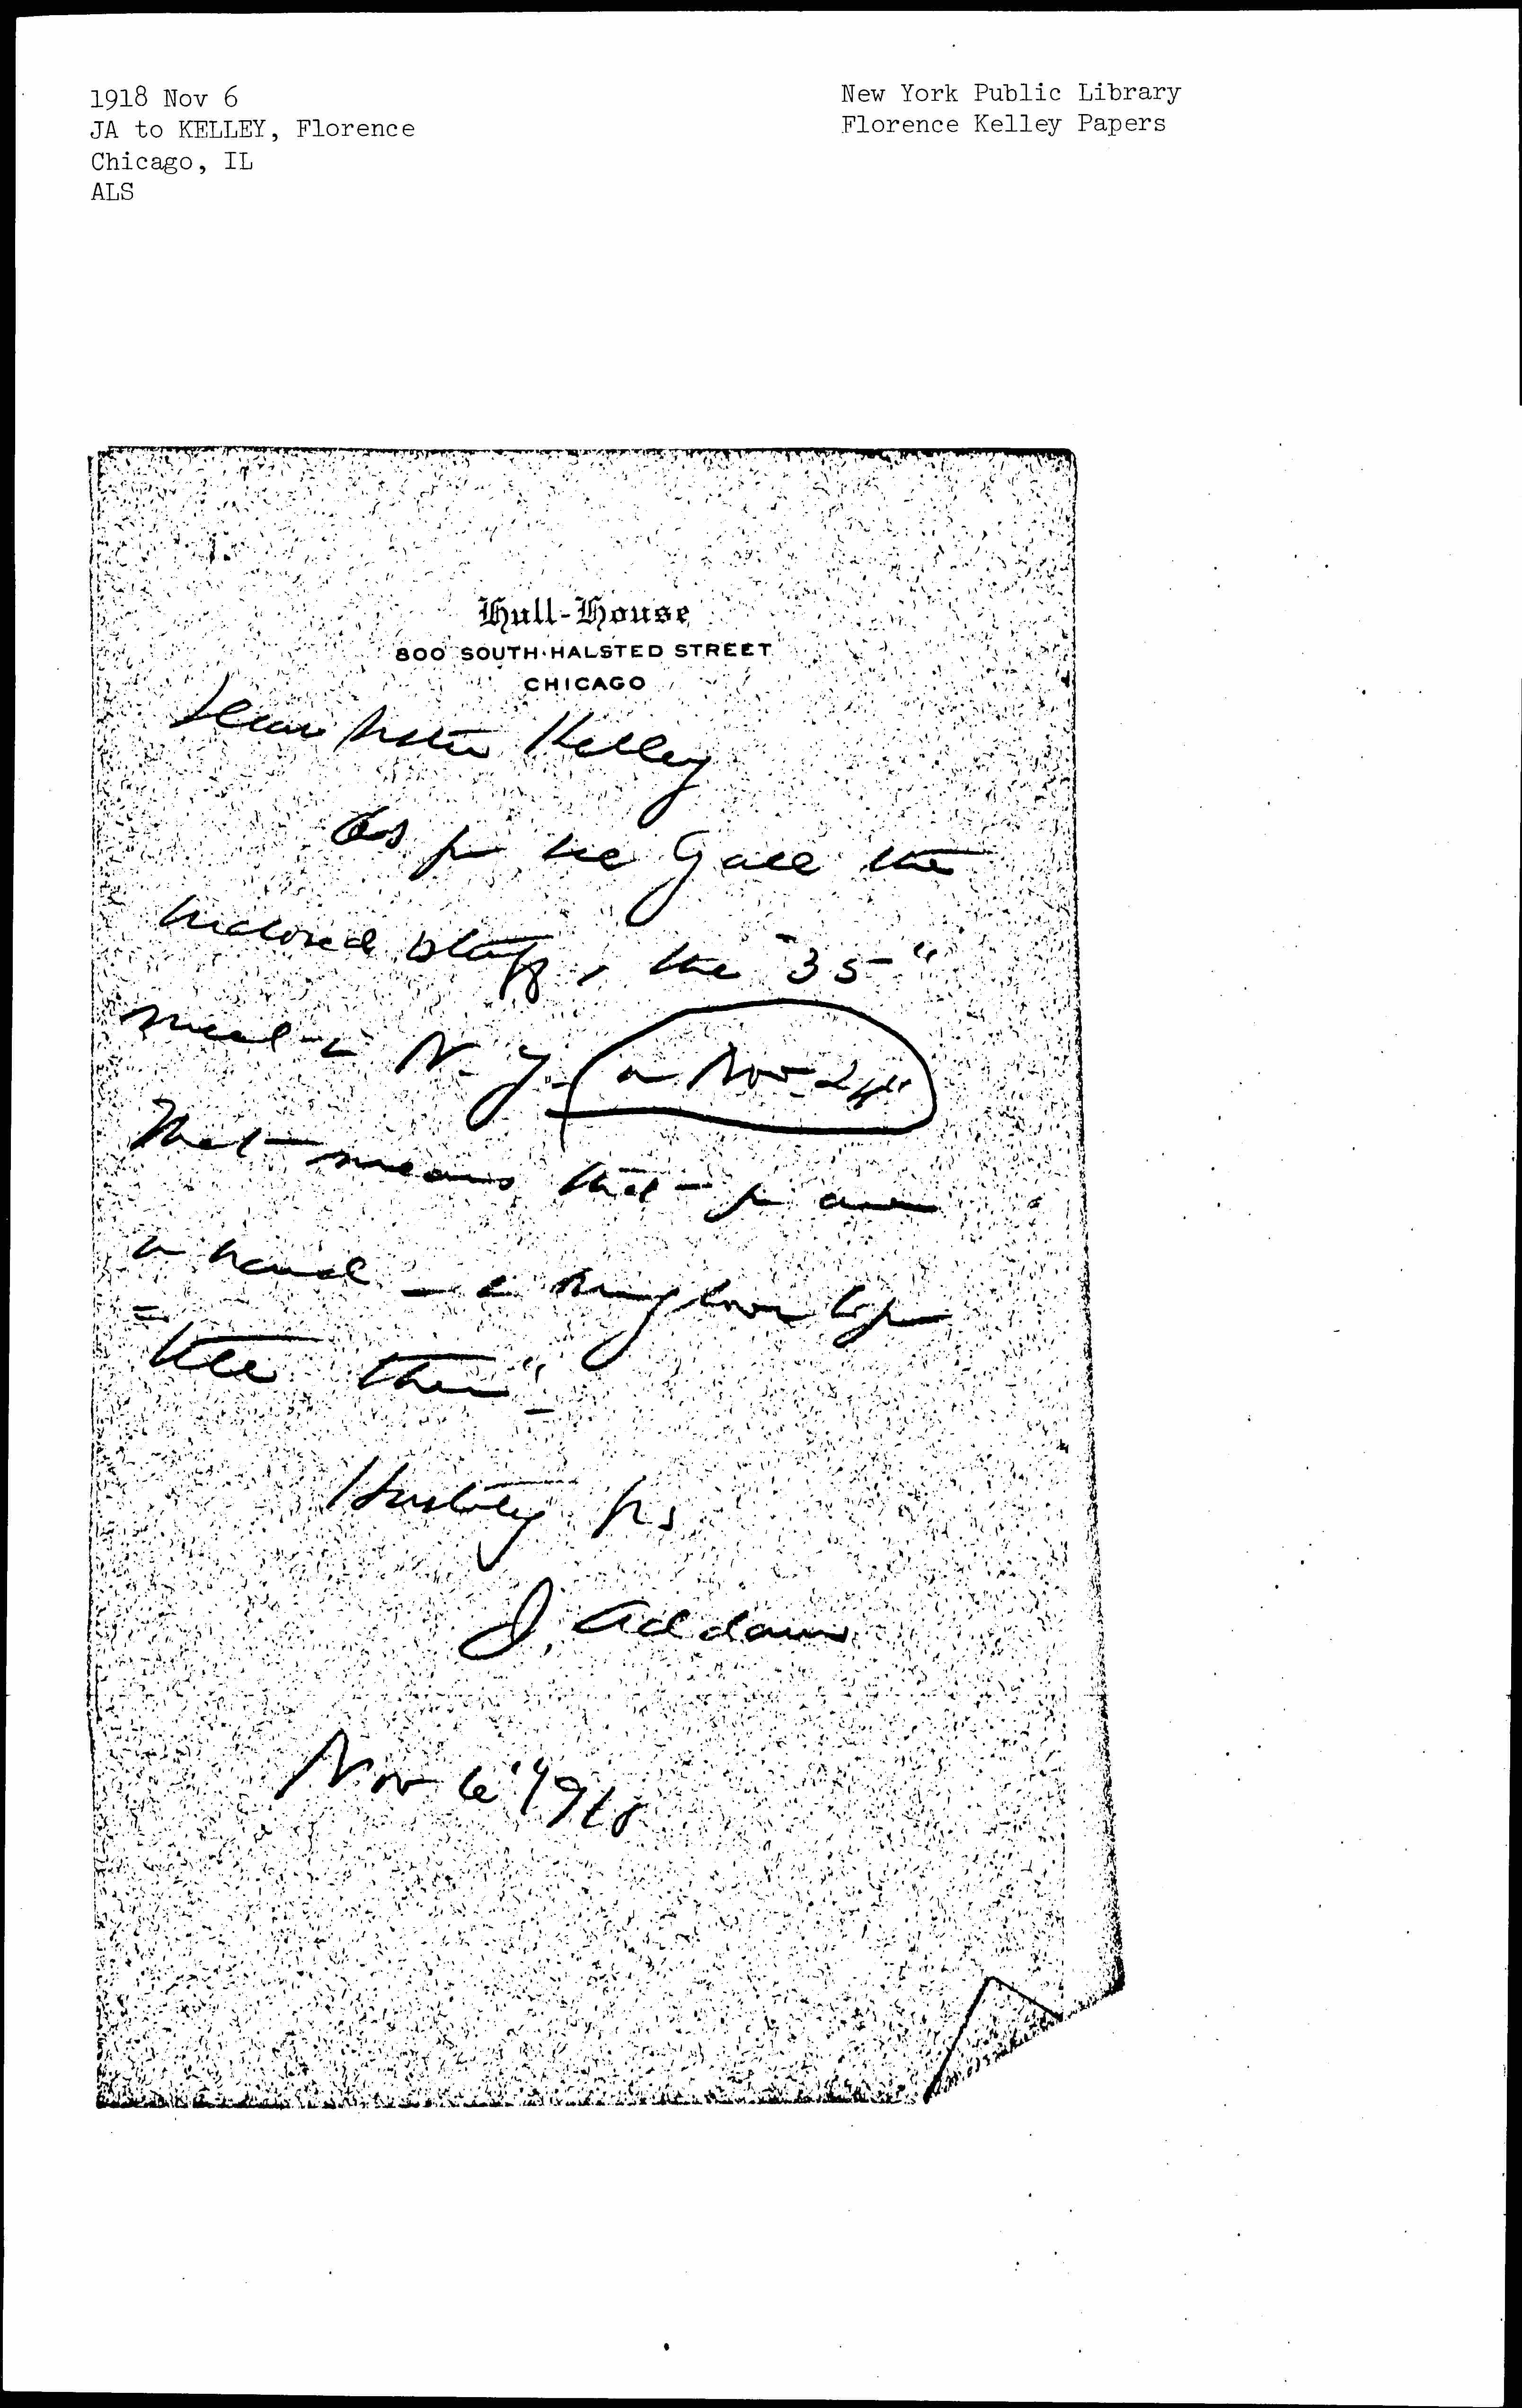 1918 Nov 6
JA to KELLEY, Florence
Chicago, IL
ALS
New York Public Library
Florence Kelley Papers
Hull-House
800 SOUTH HALSTED STREET
CHICAGO
Dear Sister Kelley
As you see all the
inclosed stuff, the "35"
meet in N.Y. on Nov 24"
That means that you are
till then"
Hastily yrs
J. Addams
Nov 6" 1918